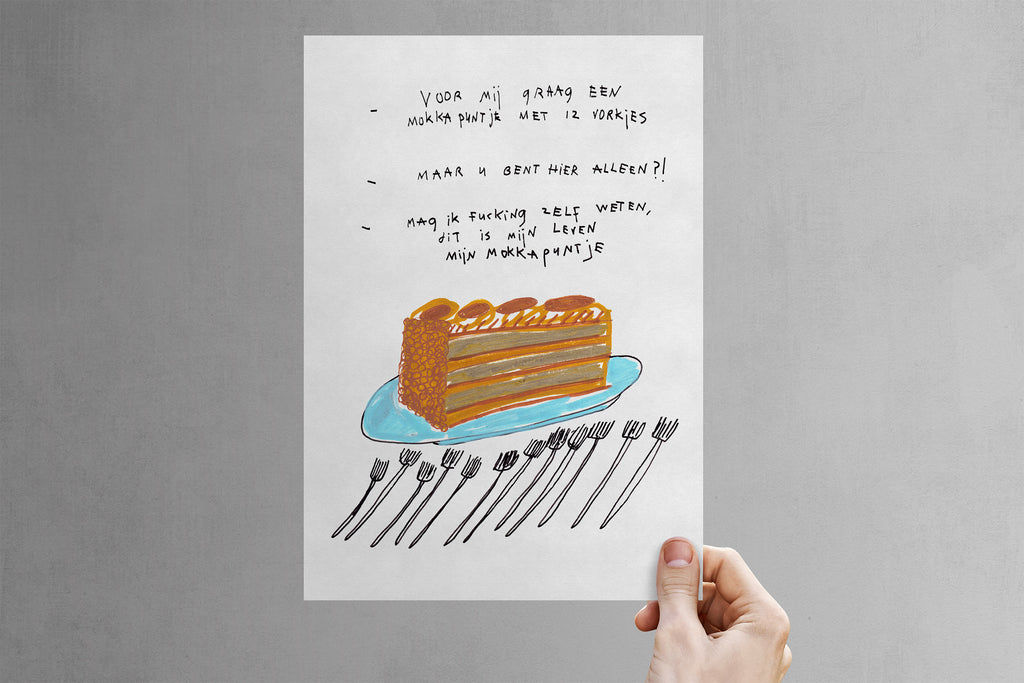 - VOOR Mij gRAAg EEN
MOKKApuNTjE MET 12 VORKjES
- MAAR u BENT HiER ALLEEN?!
- MAg ik Fucking ZELF WETEN,
diT is Mijn LEVEN
Mijn MOKKApuNTjE